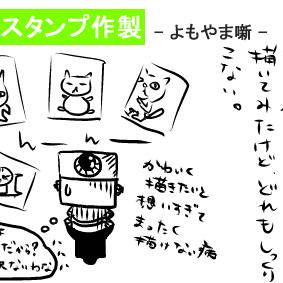 スタンプ作製
– よもやま噺 –
描いてみたけど、どれもしっくり
こない。
んーんー
かわいく
描きたいと
想いすぎて
まったく
描けない病
だから?